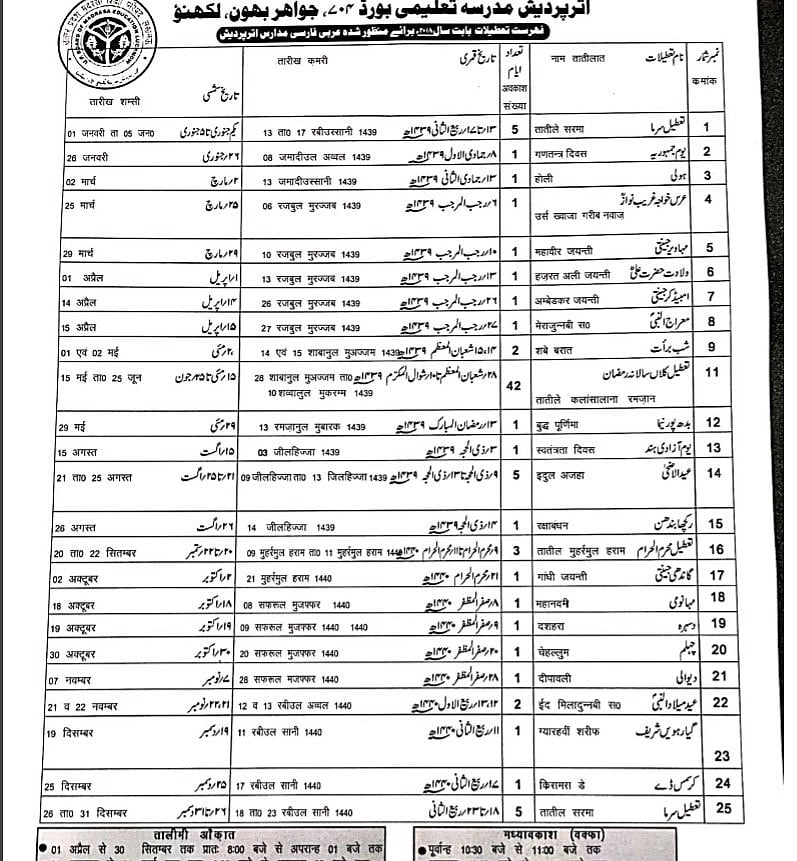 اترپردیش مدرسہ تعلیمی بورڈ ۷۰۴، جواہر بھون، لکھنؤ
فہرست تعطیلات بابت سال ۲۰۱۸ء برائے منظور شدہ عربی فارسی مدارس اترپردیش
نمبر شمار نام تعطیلات नाम तातीलात تعداد ایام تاریخ قمری तारीख कमरी تاریخ شمسی तारीख शम्सी
कमांक अवकाश संख्या
1 تعطیل سرما तातीले सरमा 5 ۱۳ تا ۱۷ ربیع الثانی ۱۴۳۹ھ 13 ता0 17 रबीउस्सानी 1439 یکم جنوری تا ۵ جنوری 01 जनवरी ता 05 जन0
2 یوم جمہوریہ गणतन्त्र दिवस 1 ۸ جمادی الاول ۱۴۳۹ھ 08 जमादीउल अव्वल 1439 ۲۶ جنوری 26 जनवरी
3 ہولی होली 1 ۱۳ جمادی الثانی ۱۴۳۹ھ 13 जमादीउस्सानी 1439 ۲ مارچ 02 मार्च
4 عرس خواجہ غریب نواز उर्स ख्वाजा गरीब नवाज़ 1 ۶ رجب المرجب ۱۴۳۹ھ 06 रजबुल मुरज्जब 1439 ۲۵ مارچ 25 मार्च
5 مہاویر جینتی महावीर जयन्ती 1 ۱۰ رجب المرجب ۱۴۳۹ھ 10 रजबुल मुरज्जब 1439 ۲۹ مارچ 29 मार्च
6 ولادت حضرت علی हज़रत अली जयन्ती 1 ۱۳ رجب المرجب ۱۴۳۹ھ 13 रजबुल मुरज्जब 1439 ۱ اپریل 01 अप्रैल
7 امبیڈکر جینتی अम्बेडकर जयन्ती 1 ۲۶ رجب المرجب ۱۴۳۹ھ 26 रजबुल मुरज्जब 1439 ۱۴ اپریل 14 अप्रैल
8 معراج النبی मेराजुन्नबी स0 1 ۲۷ رجب المرجب ۱۴۳۹ھ 27 रजबुल मुरज्जब 1439 ۱۵ اپریل 15 अप्रैल
9 شب برأت शबे बरात 2 ۱۴، ۱۵ شعبان المعظم ۱۴۳۹ھ 14 एवं 15 शाबानुल मुअज्जम 1439 ۲۰ مئی 01 एवं 02 मई
11 تعطیل کلاں سالانہ رمضان तातीले कलांसालाना रमज़ान 42 ۲۸ شعبان المعظم تا ۱۰ شوال المکرم ۱۴۳۹ھ 28 शाबानुल मुअज्जम ता0 10 शव्वालुल मुकरम्म 1439 ۱۵ مئی تا ۲۵ جون 15 मई ता0 25 जून
12 بدھ پورنیما बुद्ध पूर्णिमा 1 ۱۳ رمضان المبارک ۱۴۳۹ھ 13 रमज़ानुल मुबारक 1439 ۲۹ مئی 29 मई
13 یوم آزادی ہند स्वतंत्रता दिवस 1 ۳ ذی الحجہ ۱۴۳۹ھ 03 जीलहिज्जा 1439 ۱۵ اگست 15 अगस्त
14 عیدالاضحی इदुल अजहा 5 ۹ ذی الحجہ تا ۱۳ ذی الحجہ ۱۴۳۹ھ 09 जीलहिज्जा ता0 13 जिलहिज्जा 1439 ۲۱ تا ۲۵ اگست 21 ता0 25 अगस्त
15 رکچھا بندھن रक्षाबंधन 1 ۱۴ ذی الحجہ ۱۴۳۹ھ 14 जीलहिज्जा 1439 ۲۶ اگست 26 अगस्त
16 تعطیل محرم الحرام तातील मुहर्रमुल हराम 3 ۹ محرم الحرام تا ۱۱ محرم الحرام ۱۴۴۰ھ 09 मुहर्रमुल हराम ता0 11 मुहर्रमुल हराम 1440 ۲۰ تا ۲۲ ستمبر 20 ता0 22 सितम्बर
17 گاندھی جینتی गांधी जयन्ती 1 ۲۱ محرم الحرام ۱۴۴۰ھ 21 मुहर्रमुल हराम 1440 ۲ اکتوبر 02 अक्टूबर
18 مہانومی महानवमी 1 ۸ صفر المظفر ۱۴۴۰ھ 08 सफरुल मुजफ्फर 1440 ۱۸ اکتوبر 18 अक्टूबर
19 دسہرہ दशहरा 1 ۹ صفر المظفر ۱۴۴۰ھ 09 सफरुल मुजफ्फर 1440 1440 ۱۹ اکتوبر 19 अक्टूबर
20 چہلم चेहल्लुम 1 ۲۰ صفر المظفر ۱۴۴۰ھ 20 सफरुल मुजफ्फर 1440 ۳۰ اکتوبر 30 अक्टूबर
21 دیوالی दीपावली 1 ۲۸ صفر المظفر ۱۴۴۰ھ 28 सफरुल मजफ्फर 1440 ۷ نومبر 07 नवम्बर
22 عید میلادالنبی ईद मिलादुन्नबी स0 2 ۱۲، ۱۳ ربیع الاول ۱۴۴۰ھ 12 व 13 रबीउल अव्वल 1440 ۲۱، ۲۲ نومبر 21 व 22 नवम्बर
23 گیارہویں شریف ग्यारहवीं शरीफ 1 ۱۱ ربیع الثانی ۱۴۴۰ھ 11 रबीउल सानी 1440 ۱۹ دسمبر 19 दिसम्बर
24 کرسمس ڈے किसमस डे 1 ۱۷ ربیع الثانی ۱۴۴۰ھ 17 रबीउल सानी 1440 ۲۵ دسمبر 25 दिसम्बर
25 تعطیل سرما तातील सरमा 5 ۱۸ تا ۲۳ ربیع الثانی 18 ता0 23 रबीउल सानी 1440 ۲۶ تا ۳۱ دسمبر 26 ता0 31 दिसम्बर
तालीमी औकात
● 01 अप्रैल से 30 सितम्बर तक प्रातः 8:00 बजे से अपरान्ह 01 बजे तक
मध्यावकाश (वक्फा)
● पूर्वान्ह 10:30 बजे से 11:00 बजे तक